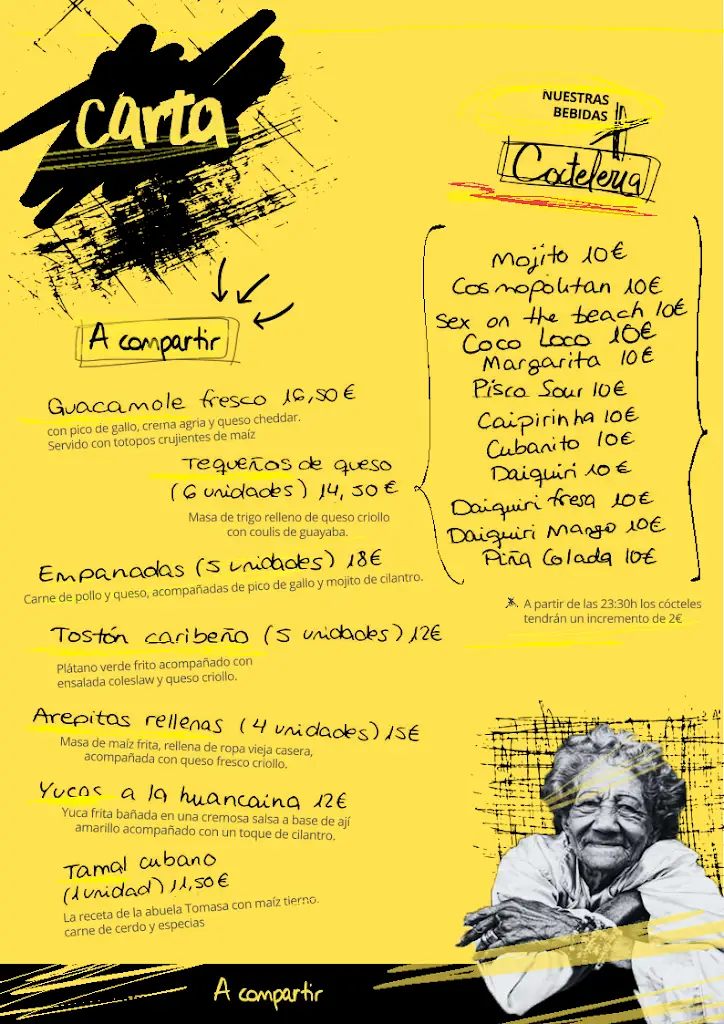 carta
A compartir
Guacamole fresco 16,50€
con pico de gallo, crema agria y queso cheddar.
Servido con totopos crujientes de maíz
Tequeños de queso
(6 unidades) 14,50€
Masa de trigo relleno de queso criollo
con coulis de guayaba.
Empanadas (5 unidades) 18€
Carne de pollo y queso, acompañadas de pico de gallo y mojito de cilantro.
Tostón caribeño (5 unidades) 12€
Plátano verde frito acompañado con
ensalada coleslaw y queso criollo.
Arepitas rellenas (4 unidades) 15€
Masa de maíz frita, rellena de ropa vieja casera,
acompañada con queso fresco criollo.
Yucas a la huancaina 12€
Yuca frita bañada en una cremosa salsa a base de ají
amarillo acompañado con un toque de cilantro.
Tamal cubano
(1 unidad) 11,50€
La receta de la abuela Tomasa con maíz tierno.
carne de cerdo y especias
NUESTRAS
BEBIDAS
Cocteleria
Mojito 10€
Cosmopolitan 10€
Sex on the beach 10€
Coco Loco 10€
Margarita 10€
Pisco Sour 10€
Caipirinha 10€
Cubanito 10€
Daiquiri 10€
Daiquiri fresa 10€
Daiquiri Mango 10€
Piña Colada 10€
A partir de las 23:30h los cócteles
tendrán un incremento de 2€
A compartir